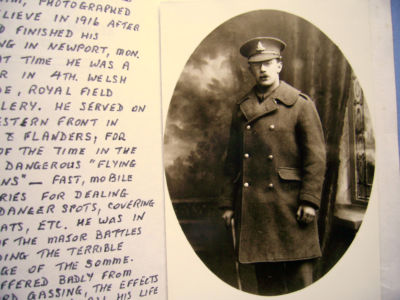 , PHOTOGRAPHED
ELIEVE IN 1916 AFTER
D FINISHED HIS
NG IN NEWPORT, MON.
AT TIME HE WAS A
R IN 4TH. WELSH
DE, ROYAL FIELD
LLERY. HE SERVED ON
ESTERN FRONT IN
& FLANDERS, FOR
OF THE TIME IN THE
DANGEROUS "FLYING
NS" — FAST, MOBILE
RIES FOR DEALING
DANGER SPOTS, COVERING
ATS, ETC. HE WAS IN
OF THE MAJOR BATTLES
DING THE TERRIBLE
GE OF THE SOMME.
FFERED BADLY FROM
RD GASSING, THE EFFECTS
ALL HIS LIFE